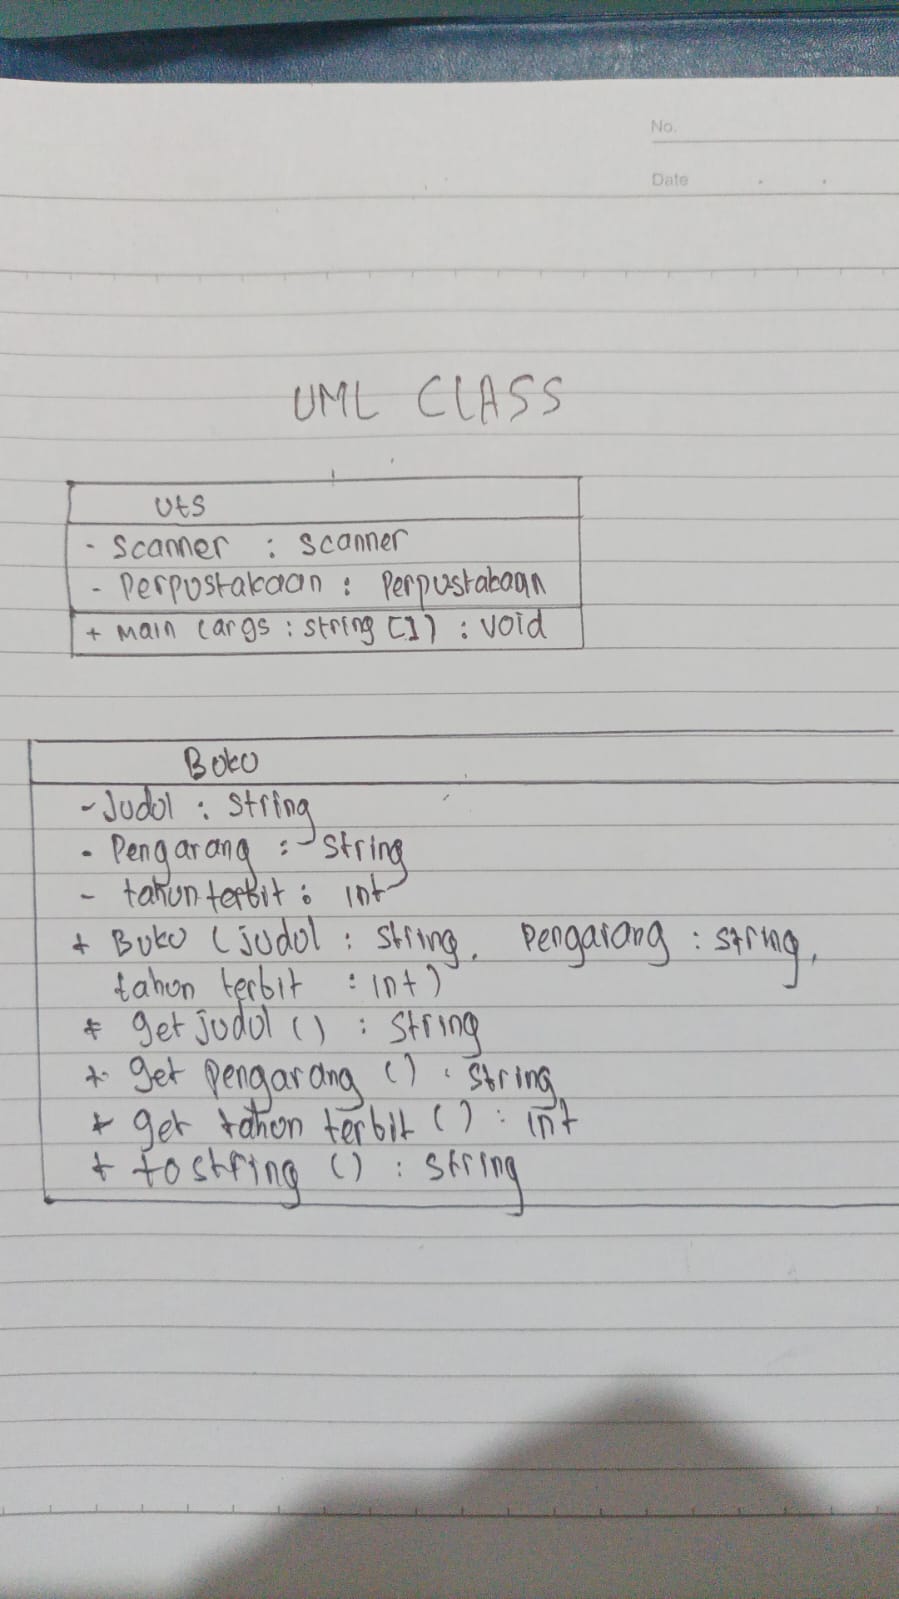 No.
Date
UML CLASS
Uts
- Scanner : Scanner
- Perpustakaan : Perpustakaan
+ Main (args : string []) : void
Buku
- Judul : String
- Pengarang : String
- tahun terbit : int
+ Buku (judul : String, Pengarang : string,
tahun terbit : int)
+ get judul () : String
+ get pengarang () : String
+ get tahun terbit () : int
+ to string () : String